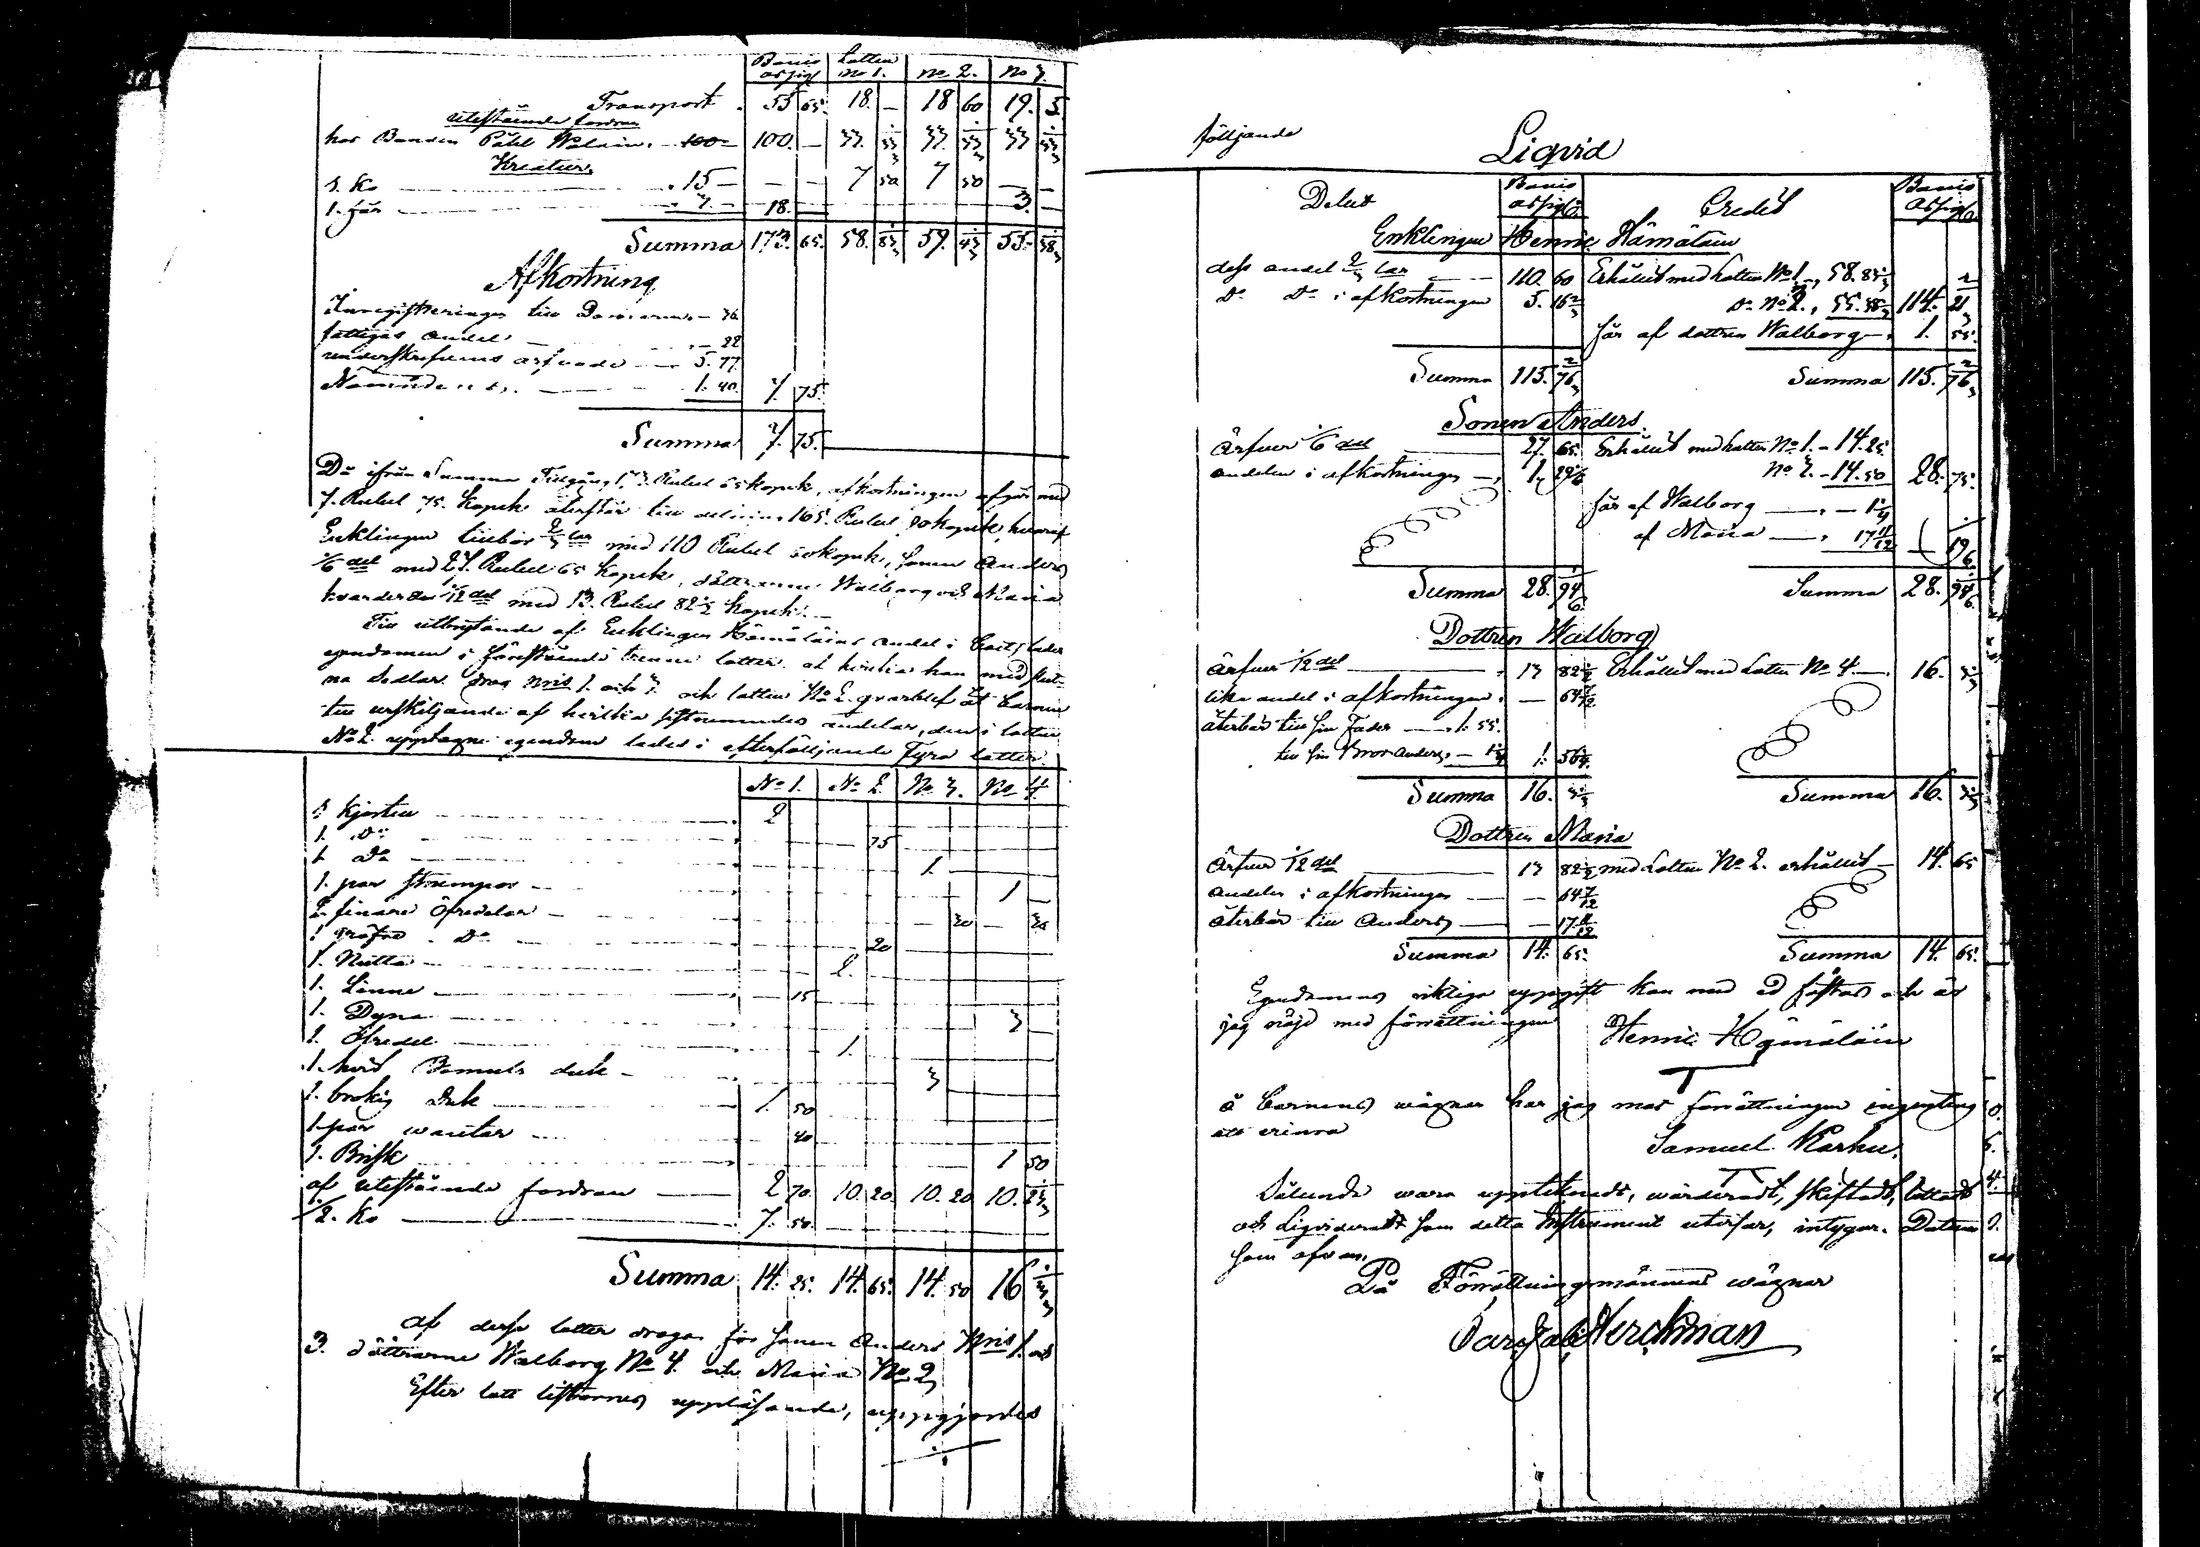 Banco Lotten
assign No 1. No 2. No 3.
Transport 55 65 18. — 18 60 19. 5
Utestående fordran
hos Bonden Påhl Walain. 100 — 100. — 33. 33 1/3 33. 33 1/3 33 33 1/3
Kreatur
1. Ko 15 — — — 7 50 7 50 — —
1. får 3. — 18. — 3. —
Summa 173. 65. 58. 83 1/3 59. 43 1/3 55. 38 1/3
Afkortning
Inregistreringen till Domaren — 36
fattigas andel — 22
underskrifvens arfvode — 5. 77
Nämnde 1. 40. 7. 75.
Summa 7. 75.
Då ifrån Summa Tillgång 173. Rubel 65 kopek, afkortningen afgår med
7. Rubel 75. kopek återstår till delning 165. Rubel 90 kopek, hvaraf
Enklingen tillhör 2/3 lar med 110 Rubel 60 kopek, Sonen Anders
1/6 del med 27. Rubel 65 kopek, döttrarne Walborg och Maria
hvardera 1/12 del med 13. Rubel 82 1/2 kopek. —
Till utbrytande af Enklingen Hämäläins andel i boet, lades
egendomen i förestående trenne lotter af hvilka han med
na sedlar drog Nris 1. och 3. och lotten No 2. qvarblef åt barnen
till urskiljande af hvilka sistnämndes andelar, den i lotten
No 2. upptagne egendom lades i efterföljande Fyra lotter.
No 1. No 2. No 3. No 4.
1 kjortel 2
1. Do 75
1. Do 1.
1. par strumpor 1 —
2. finare öfredelar 30 — 30
1 gröfre Do 20
1. 2.
1. Linne 15
1. Dyna 3 —
1. Öfredel 1.
1. hvit Bomuls duk 3
1. brokig Duk 1. 50
1. par wantar 40
1. Brisk 1 50
af utestående fordran 2 70. 10. 20 10. 20 10. 23 1/3
1/2. Ko 7. 50.
Summa 14. 25. 14. 65. 14. 50 16 1/3
af desse lotter drogos för sonen Anders Nris 1. och
3. döttrarne Walborg No 4. och Maria No 2
Efter lott listornes uppläsande, uppgjordes
följande
Liqvid
Debet Banco assign Credit Banco assign
Enklingen Henric Hämäläin
dess andel 2/3 lar 110. 60 Erhållit med Lotten No 1., 58. 83 1/3
Do Do i afkortningen 5. 16 2/3 Do No 3., 55. 38 1/3 114. 21 2/3
får af dottren Walborg 1. 55.
Summa 115. 76 2/3 Summa 115. 76 2/3
Sonen Anders
Ärfver 1/6 del 27. 65. Erhållit med Lotten No 1. — 14. 25
andelen i afkortningen 1. 29 1/6 No 3. — 14. 50 28. 75.
får af Walborg — 1 1/4
af Maria 17 11/12 — 19 1/6
Summa 28. 94 1/6 Summa 28. 94 1/6
Dottren Walborg
Ärfver 1/12 del 13 82 1/2 Erhållit med Lotten No 4 — 16. 3 1/3
lika andel i afkortningen — 64 7/12
återbär till sin Fader — 1. 55.
till sin Bror Anders — 1 1/4 1. 56 1/4
Summa 16. 3 1/3 Summa 16. 3 1/3
Dottren Maria
Ärfver 1/12 del 13 82 1/2 med Lotten No 2. erhållit — 14. 65
andelen i afkortningen — 64 7/12
återbär till Anders — 17 11/12
Summa 14. 65. Summa 14. 65.
Egendomens riktiga uppgift kan med ed fästas och är
jag nöjd med förrättningen Henric Hämäläin
å barnens wägnar har jag mot förrättningen ingenting
att erinra
Samuel Karhu.
Sålunda wara upptecknadt, wärderadt, skiftadt, lottadt
och Liqvideradt som detta Instrument utvisar, intygar. Datum
som ofvan.
På Förrättningsmännens wägnar